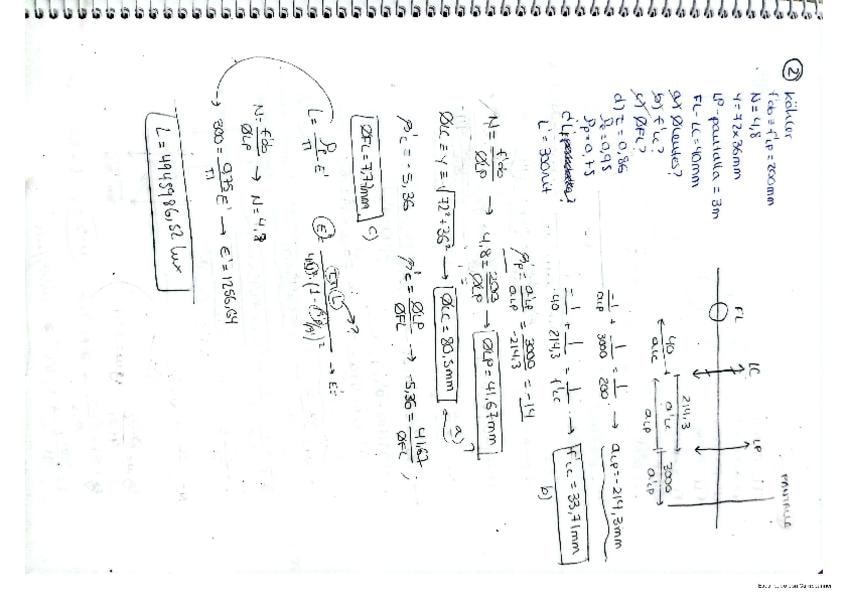 ② Köhler
f'ob = f'LP = 200mm
N = 4,8
Y = 72x36mm
LP-pantalla = 3m
FL-LC = 40mm
a) Ø lentes?
b) f'LC?
c) ØFL?
d) τ = 0,86
ρ = 0,95
ρp = 0,75
L' = 300nit
FL
LC
LP
PANTALLA
40
aLC
214,3
a'LC
aLP
3000
a'LP
-1/aLP + 1/3000 = 1/200 → aLP = -214,3mm
-1/-40 + 1/214,3 = 1/f'LC → f'LC = 33,71mm b)
β'p = a'LP/aLP = 3000/-214,3 = -14
N = f'ob/ØLP → 4,8 = 200/ØLP → ØLP = 41,67mm
ØLC = Y = √72²+36² → ØLC = 80,5mm a)
β'c = -5,36 β'c = ØLP/ØFL → -5,36 = 41,67/ØFL ;
ØFL = 7,77mm c)
L = ρ/π E'
→ E'
N = f'ob/ØLP → N = 4,8
→ 300 = 0,75/π E' → E' = 1256,64
L = 49459,86,52 lux